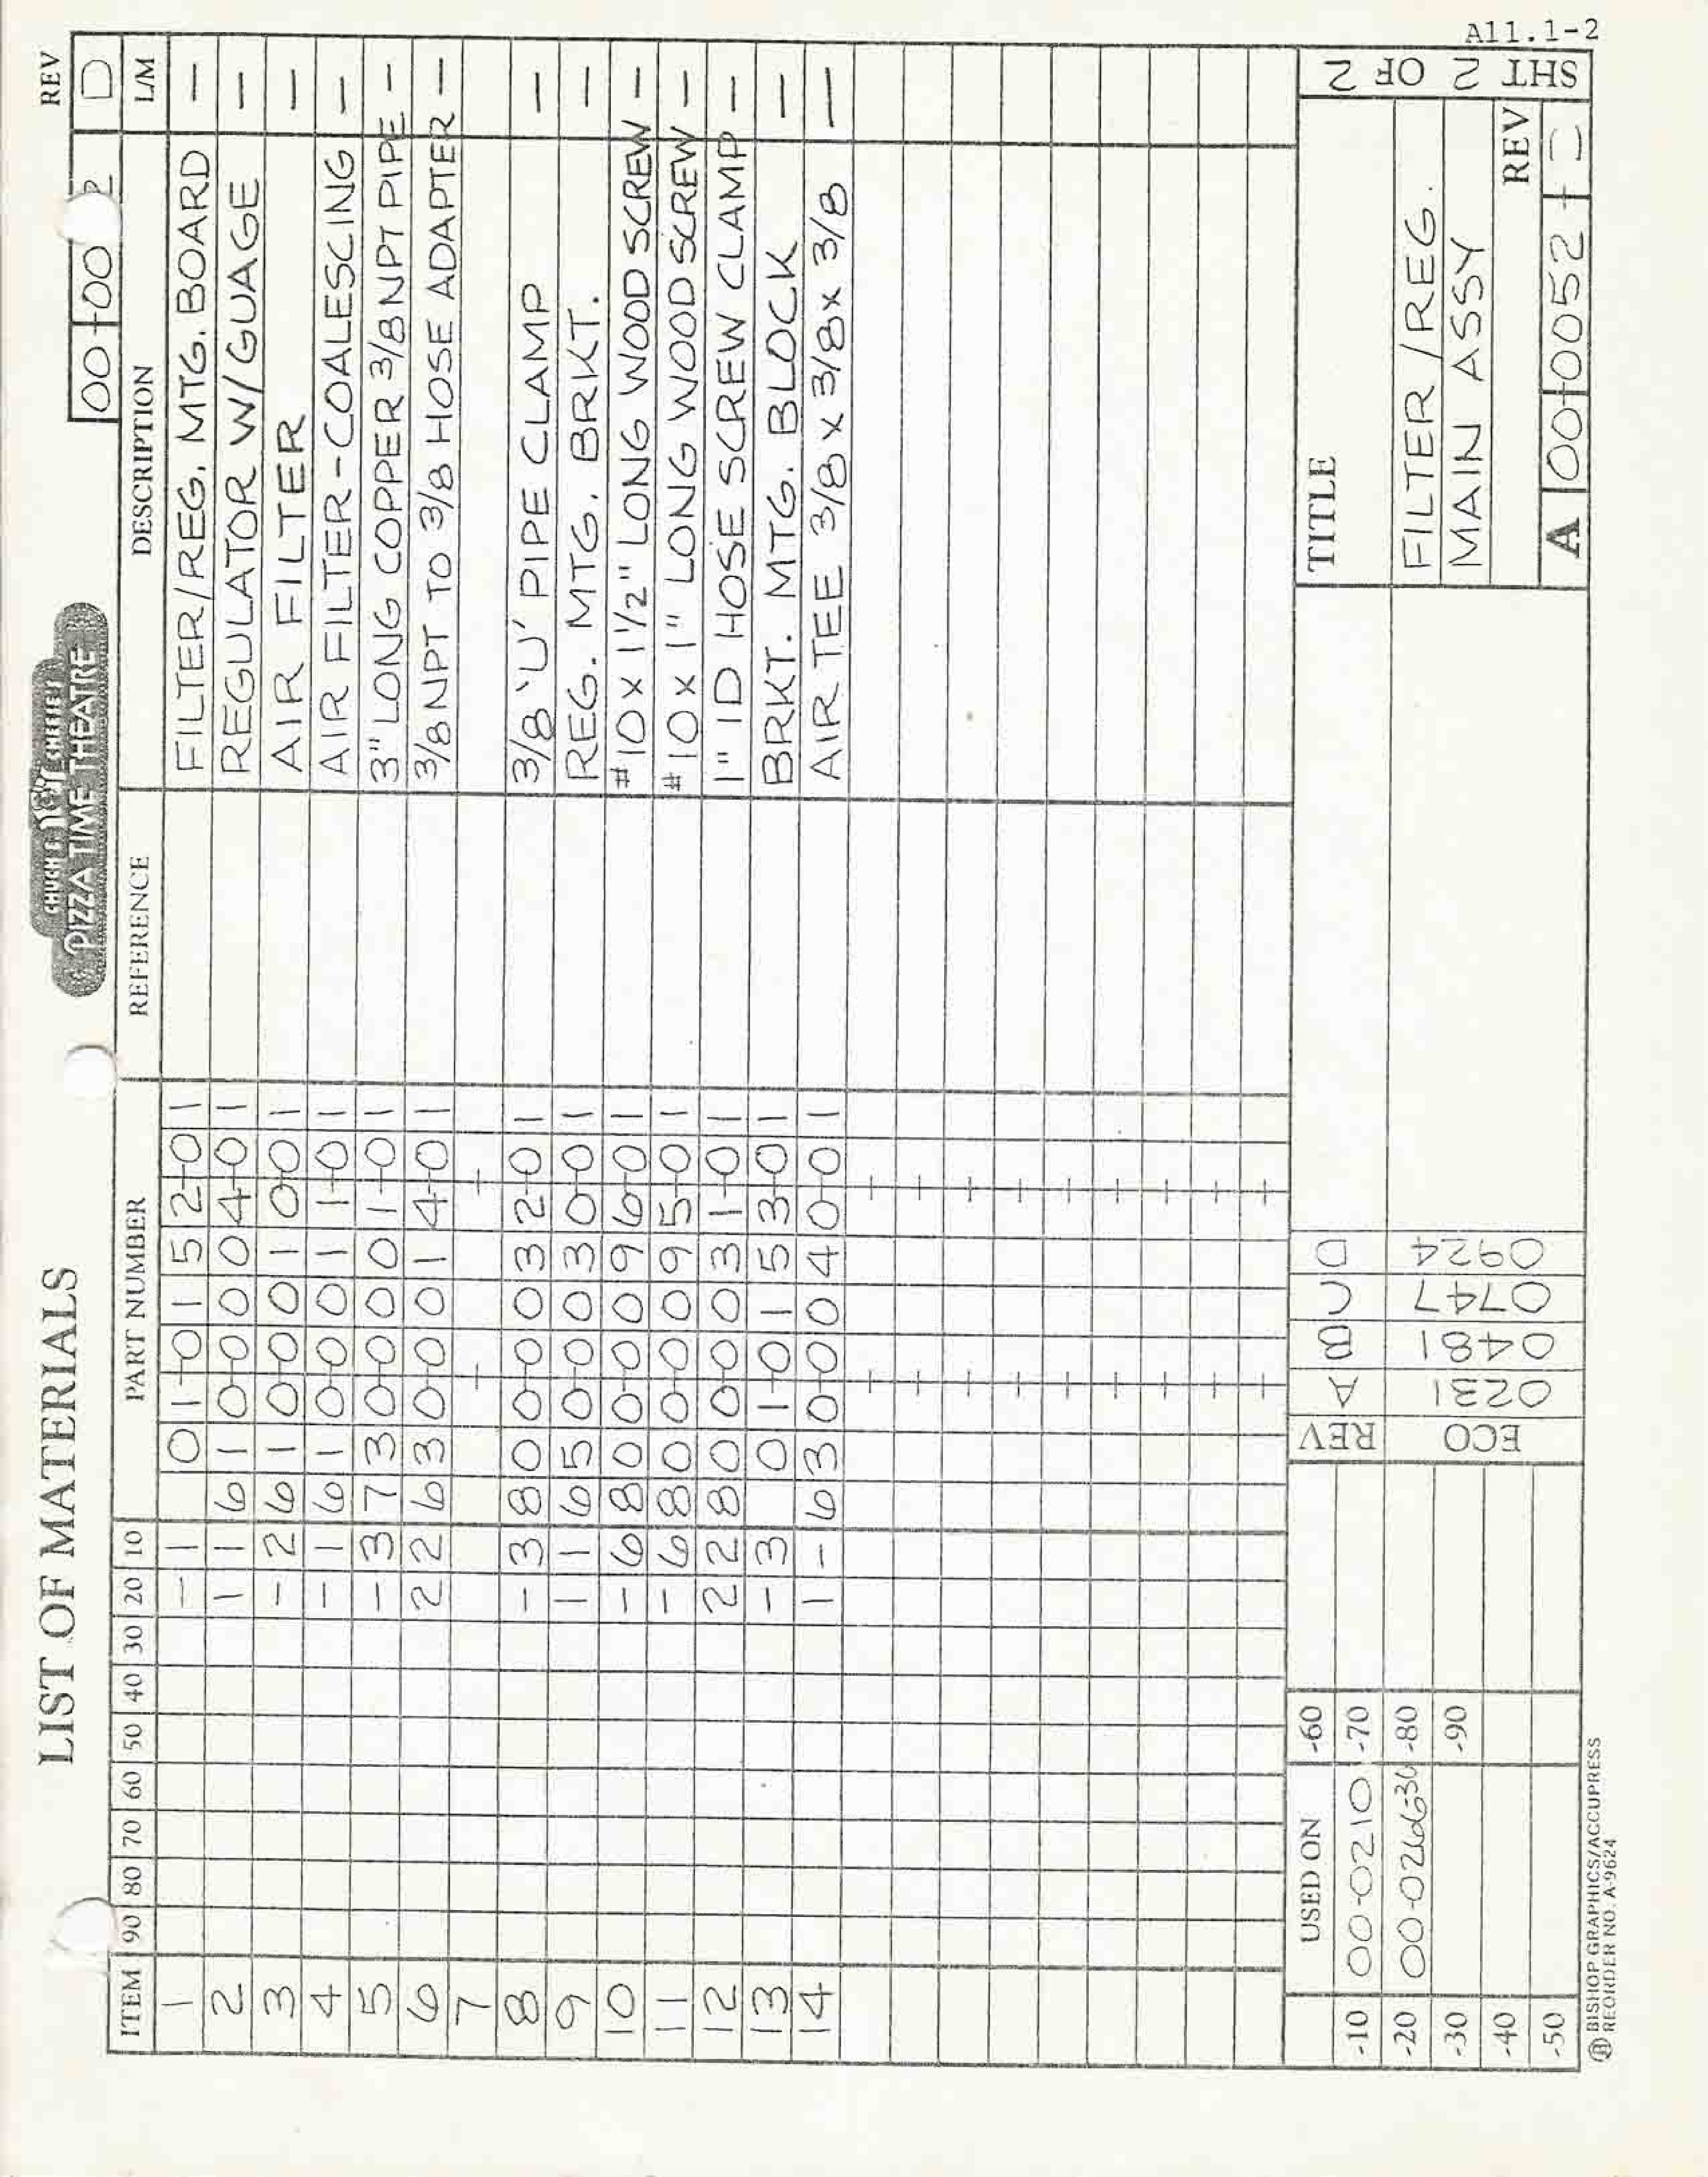 A11.1-2
LIST OF MATERIALS
CHUCK E. CHEESE'S
PIZZA TIME THEATRE
REV
00-00 2 D
ITEM 90 80 70 60 50 40 30 20 10 PART NUMBER REFERENCE DESCRIPTION L/M
1 - 1 01-0152-01 FILTER/REG. MTG. BOARD -
2 1 1 610-0004-01 REGULATOR W/GUAGE -
3 - 2 610-0010-01 AIR FILTER -
4 - 1 610-0011-01 AIR FILTER-COALESCING -
5 - 3 730-0001-01 3" LONG COPPER 3/8 NPT PIPE -
6 2 2 630-0014-01 3/8 NPT TO 3/8 HOSE ADAPTER -
7
8 - 3 800-0032-01 3/8 'U' PIPE CLAMP -
9 1 1 650-0030-01 REG. MTG. BRKT. -
10 - 6 800-0096-01 #10 x 1 1/2" LONG WOOD SCREW -
11 - 6 800-0095-01 #10 x 1" LONG WOOD SCREW -
12 2 2 800-0031-01 1" ID HOSE SCREW CLAMP -
13 - 3 01-0153-01 BRKT. MTG. BLOCK -
14 1 - 630-0040-01 AIR TEE 3/8 x 3/8 x 3/8 -
USED ON
-10 00-0210
-20 00-0266
-30
-40
-50
-60
-70
-80
-90
REV A B C D
ECO 0231 0481 0747 0924
TITLE
FILTER/REG.
MAIN ASSY
REV
A 00-0052-
SHT 2 OF 2
BISHOP GRAPHICS/ACCUPRESS
REORDER NO. A-9624